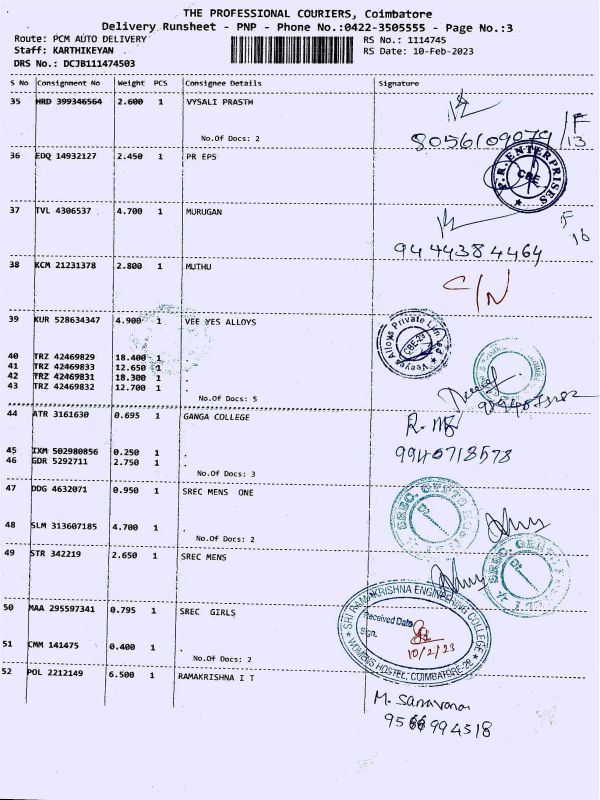 THE PROFESSIONAL COURIERS, Coimbatore
Delivery Runsheet - PNP - Phone No.:0422-3505555 - Page No.:3
Route: PCM AUTO DELIVERY
RS No.: 1114745
Staff: KARTHIKEYAN
RS Date: 10-Feb-2023
DRS No.: DCJB111474503
S No Consignment No Weight PCS Consignee Details Signature
35 HRD 399346564 2.600 1 VYSALI PRASTH
No.Of Docs: 2
8056109079 / F
13
36 EDQ 14932127 2.450 1 PR EPS
P.R. ENTERPRISES
CBE
37 TVL 4306537 4.700 1 MURUGAN
F
16
9444384464
38 KCM 21231378 2.800 1 MUTHU
C/N
39 KUR 528634347 4.900 1 VEE YES ALLOYS
Veeyes Alloys Private Limited
CBE-23
40 TRZ 42469829 18.400 1 .
41 TRZ 42469833 12.650 1 .
42 TRZ 42469831 18.300 1 .
43 TRZ 42469832 12.700 1 .
No.Of Docs: 5
44 ATR 3161630 0.695 1 GANGA COLLEGE
45 IXM 502980856 0.250 1 .
9940718578
46 GDR 5292711 2.750 1 .
No.Of Docs: 3
47 DDG 4632071 0.950 1 SREC MENS ONE
SREC.
48 SLM 313607185 4.700 1 .
No.Of Docs: 2
49 STR 342219 2.650 1 SREC MENS
SREC.
50 MAA 295597341 0.795 1 SREC GIRLS
SRI RAMAKRISHNA ENGINEERING COLLEGE
Received Date
Sign.
10/2/23
WOMENS HOSTEL, COIMBATORE-22
51 CMM 141475 0.400 1 .
No.Of Docs: 2
52 POL 2212149 6.500 1 RAMAKRISHNA I T
M. Saravana
9566994518